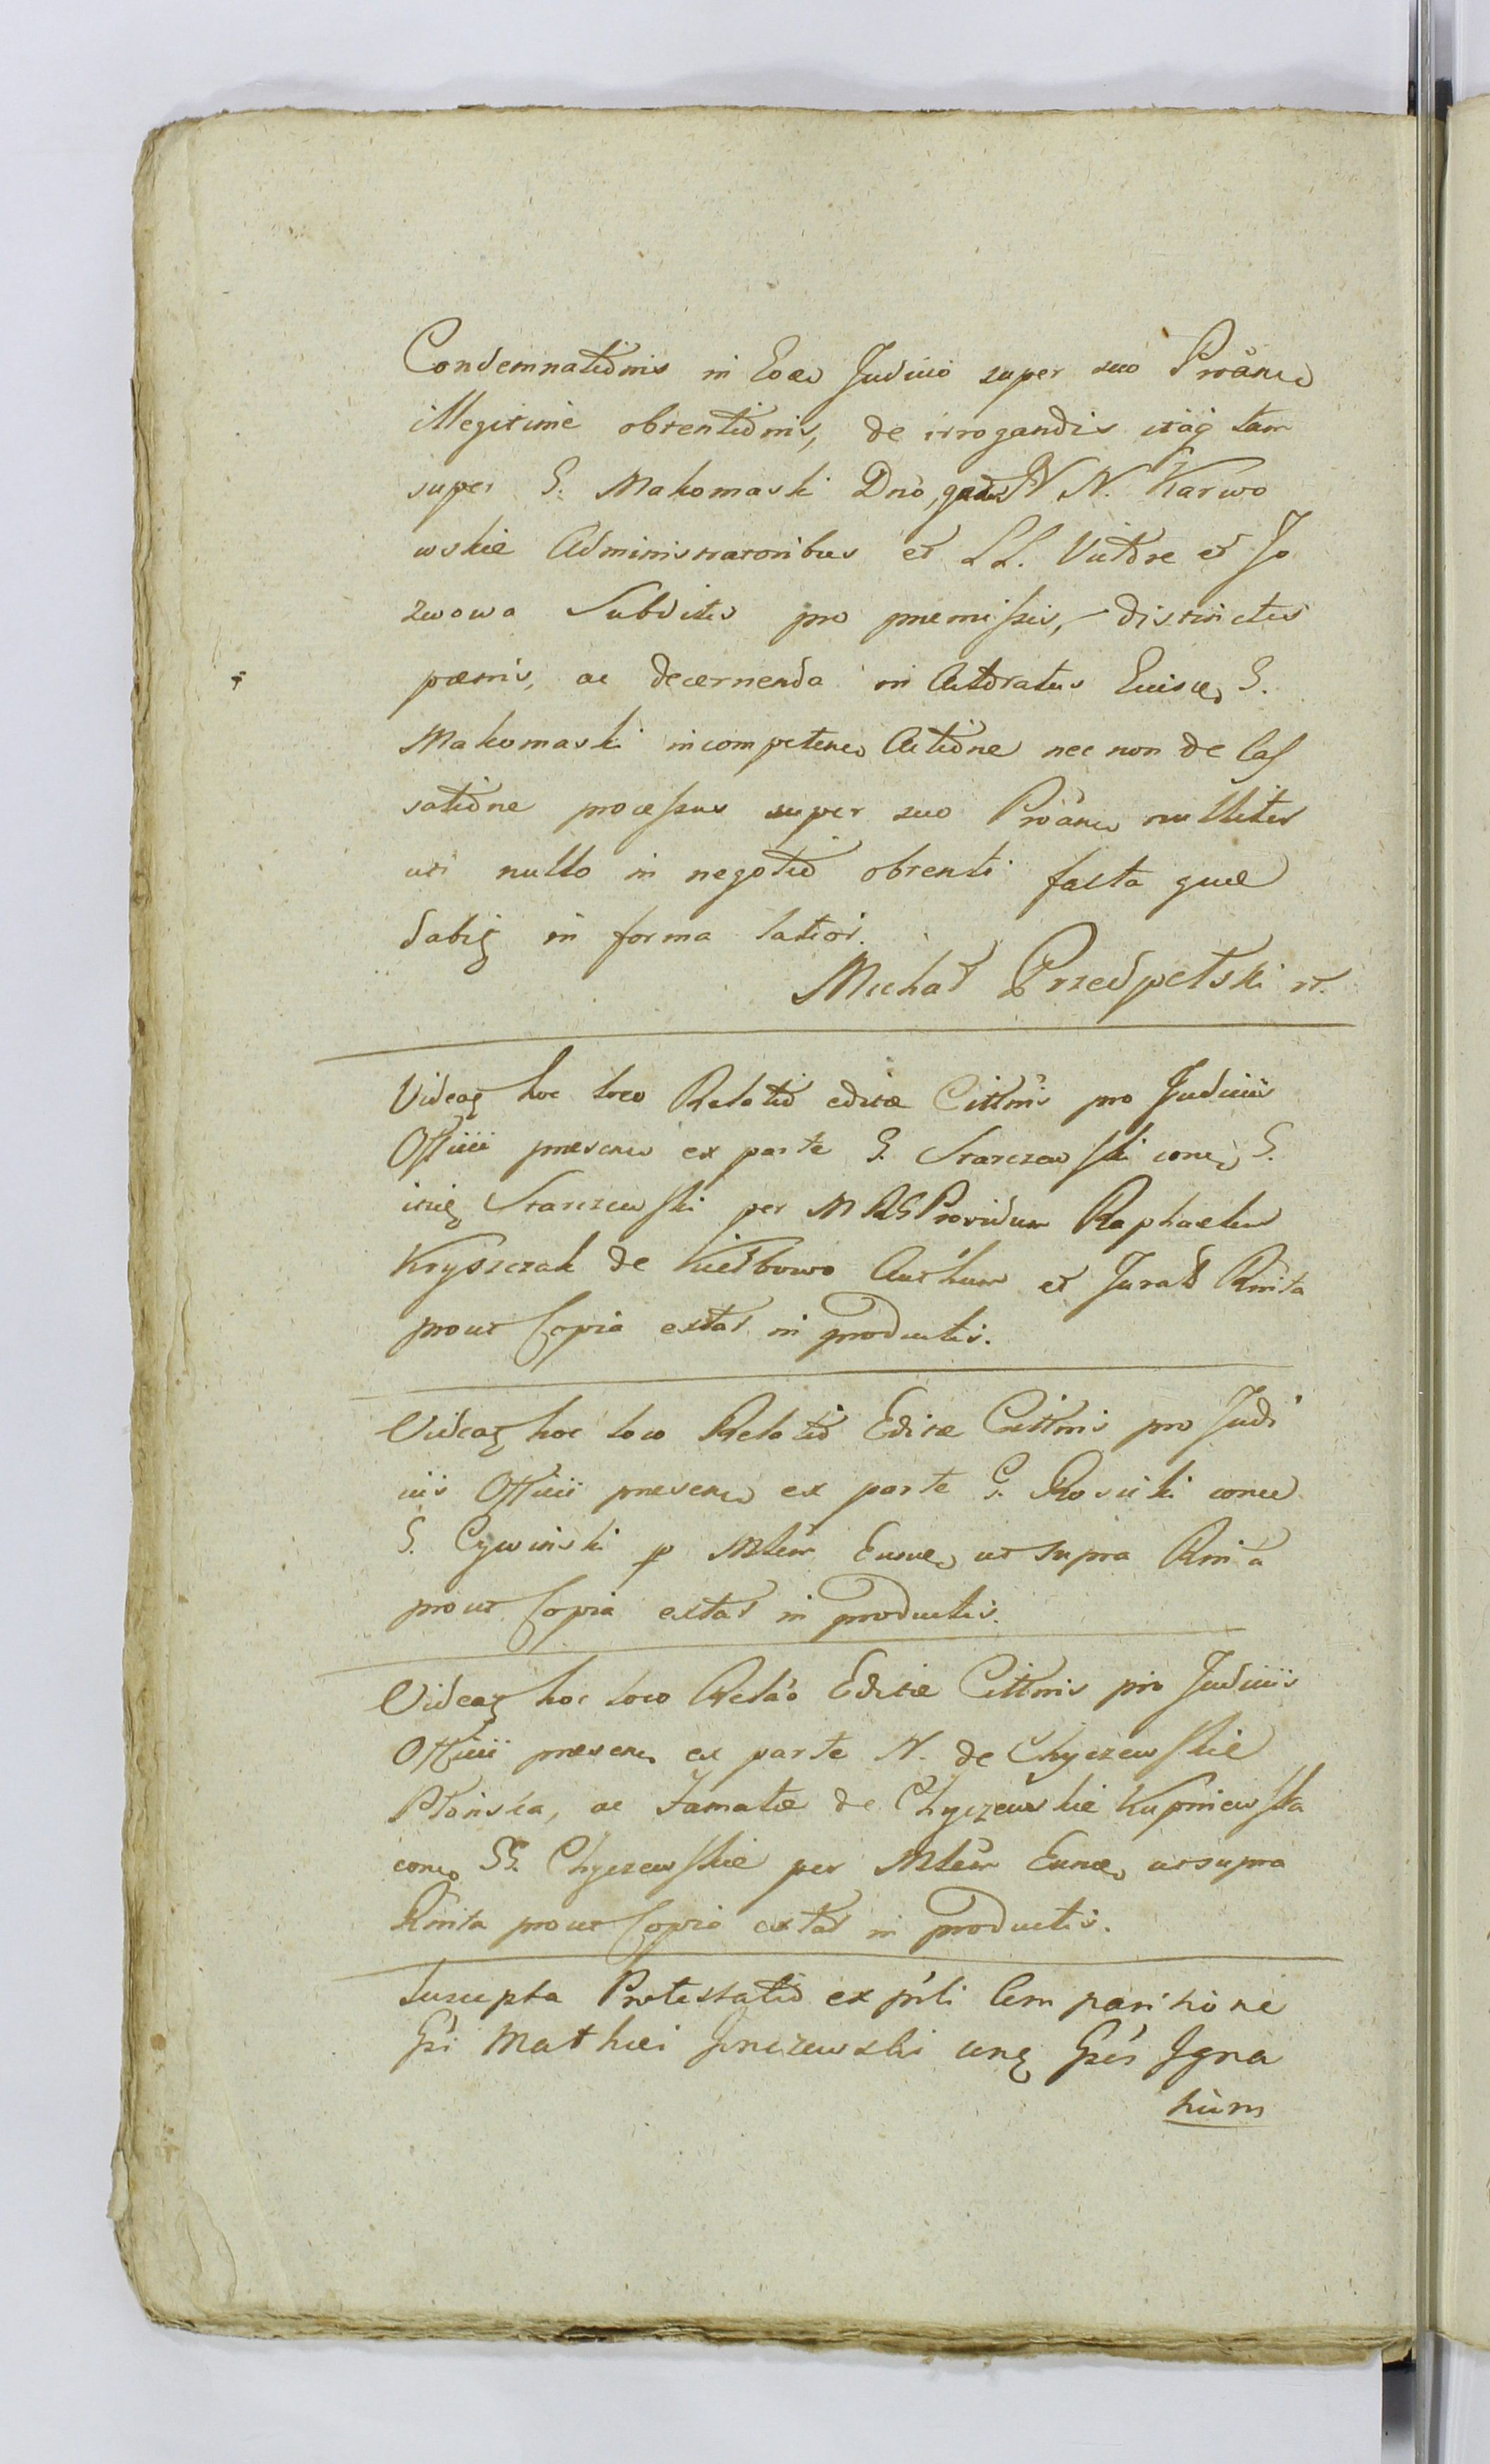 Condemnationis in Eodem Judicio super suo Proãnco
illegitime obtentionis, de irrogandis itaq tam
super G. Makomaski Dño, N. N. Karwo
wskie Administratoribus et LL. Victore et Jo
zwowa Subditis pro premissis, districtis
poenis, ac decernenda in Actoratus Eiusd G.
Makomaski incompeten Actione nec non de Cas
satione processus super suo Proãnco nulliter
uti nullo in negotio obtenti facta quæ
dabit in forma latiori.
Michał Przedpełski
Videat hoc loco Relatio editæ Cittñis pro Judiciis
Officii præsen ex parte G. Starczewski con G.
itid Starczewski per M RG Providum Raphaelem
Kryszczak de Kiełbowo Authum et Jurat Rñita
prout Copia extat in productis.
Videat hoc loco Relatio Editæ Cittñis pro Judi
ciis Officii præsen ex parte G. Rosicki con
G. Cywinski p Mlem Eund ut supra Rñita
prout Copia extat in productis.
Videat hoc loco Relão Editæ Cittñis pro Judiciis
Officii præsen ex parte N. de Chyczewskie
Płońska, ac Famatæ de Chyczewskie Kupniewska
con GG. Chyczewskie per Mlem Eund ut supra
Rñita prout Copia extat in productis.
Suscepta Protestatio ex pñli Comparitione
Gsi Mathiei con Gsũ Igna
tium